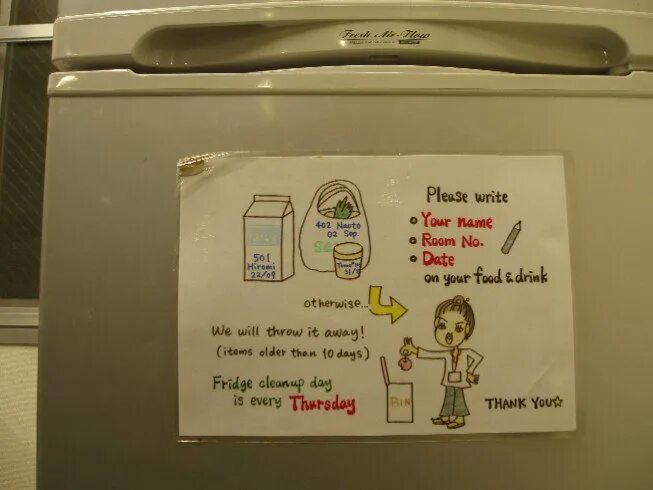 Fresh Air Flow
Please write
Your name
Room No.
Date
on your food & drink
501
Hiromi
22/09
402 Naoto
02 Sep.
otherwise...
We will throw it away!
(items older than 10 days)
Fridge cleanup day
is every Thursday
BIN
THANK YOU☆